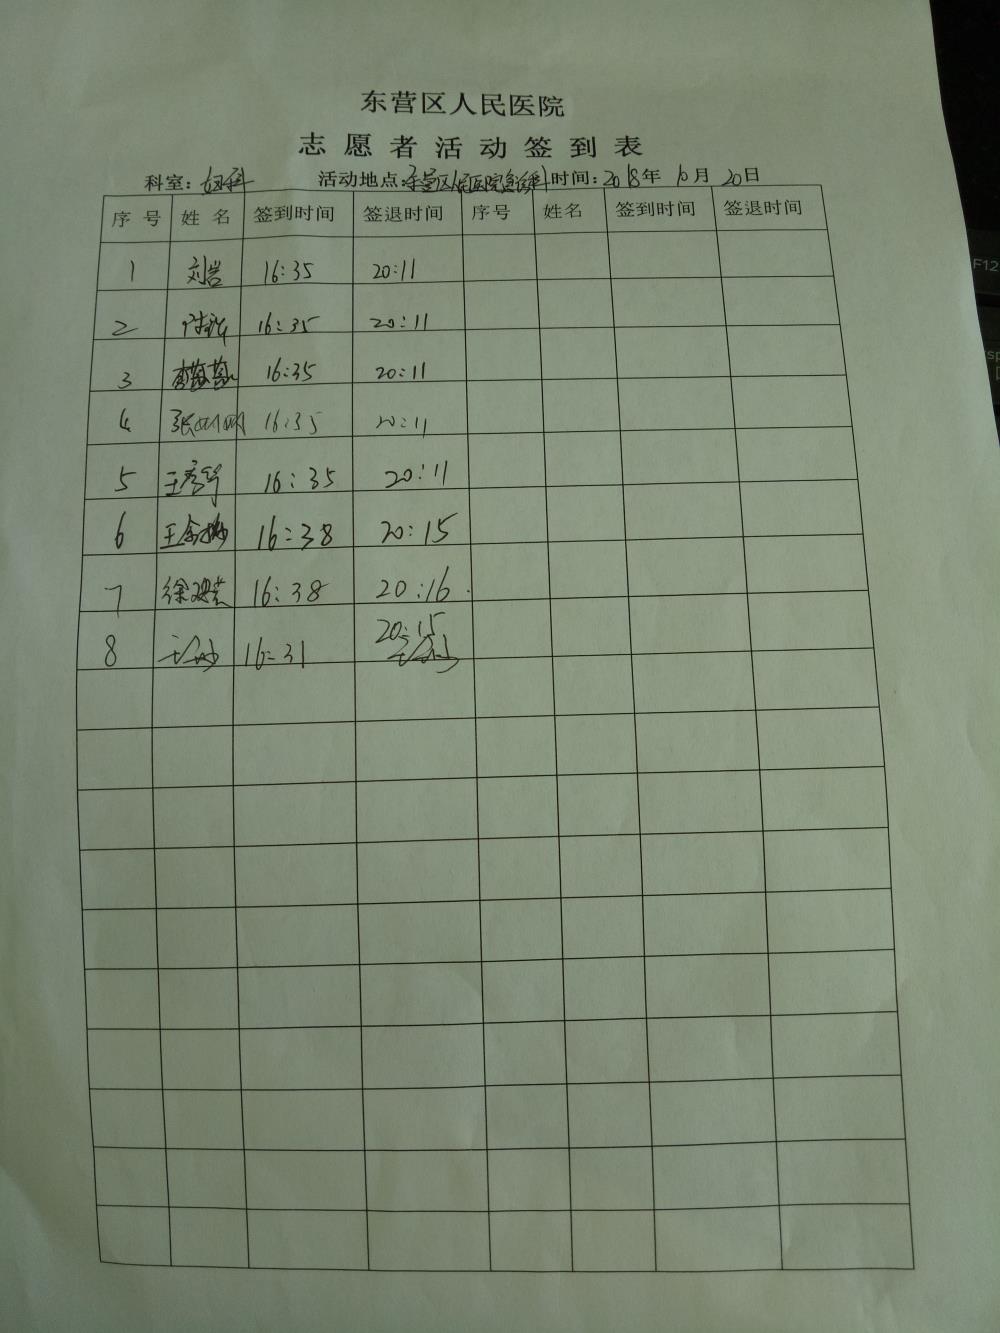 东营区人民医院
志愿者活动签到表
科室: 妇科 活动地点: 东营区人民医院急诊科 时间: 2018年10月20日
序号 姓名 签到时间 签退时间 序号 姓名 签到时间 签退时间
1 刘岩 16:35 20:11
2 16:35 20:11
3 16:35 20:11
4 16:35 20:11
5 王彦华 16:35 20:11
6 王金梅 16:38 20:15
7 16:38 20:16
8 16:31 20:15
F12